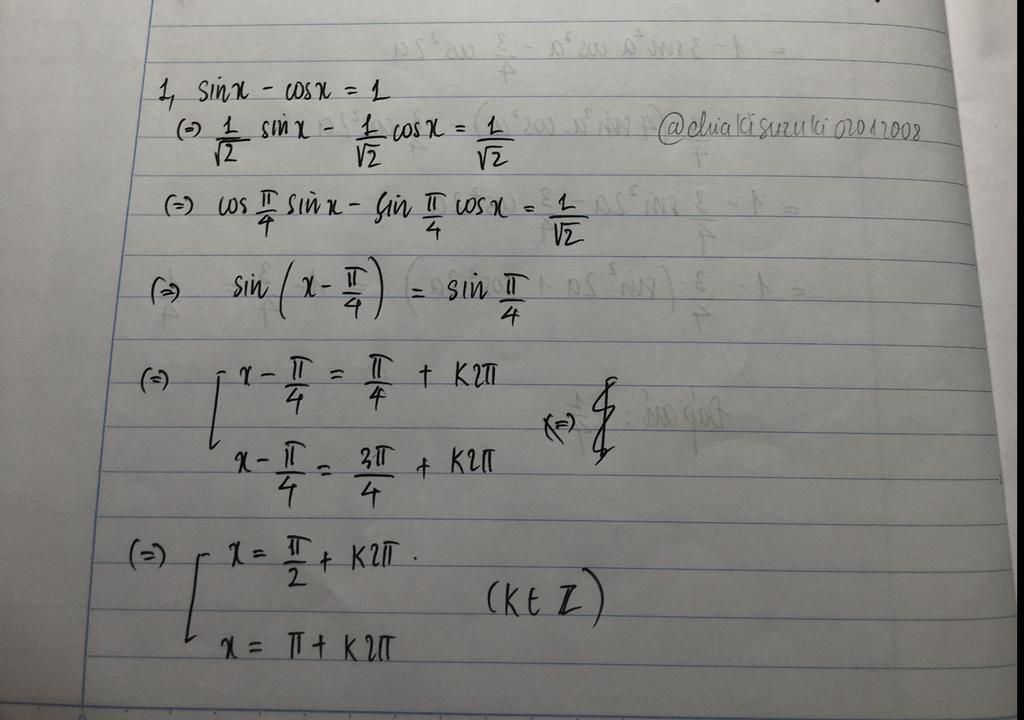 1, sinx - cosx = 1
(=) 1/√2 sinx - 1/√2 cosx = 1/√2 @chiakisuzuki02012008
(=) cos π/4 sinx - sin π/4 cosx = 1/√2
(=) sin(x - π/4) = sin π/4
(=) [ x - π/4 = π/4 + K2π
x - π/4 = 3π/4 + K2π (=)
(=) [ x = π/2 + K2π.
(K ∈ Z)
x = π + K2π